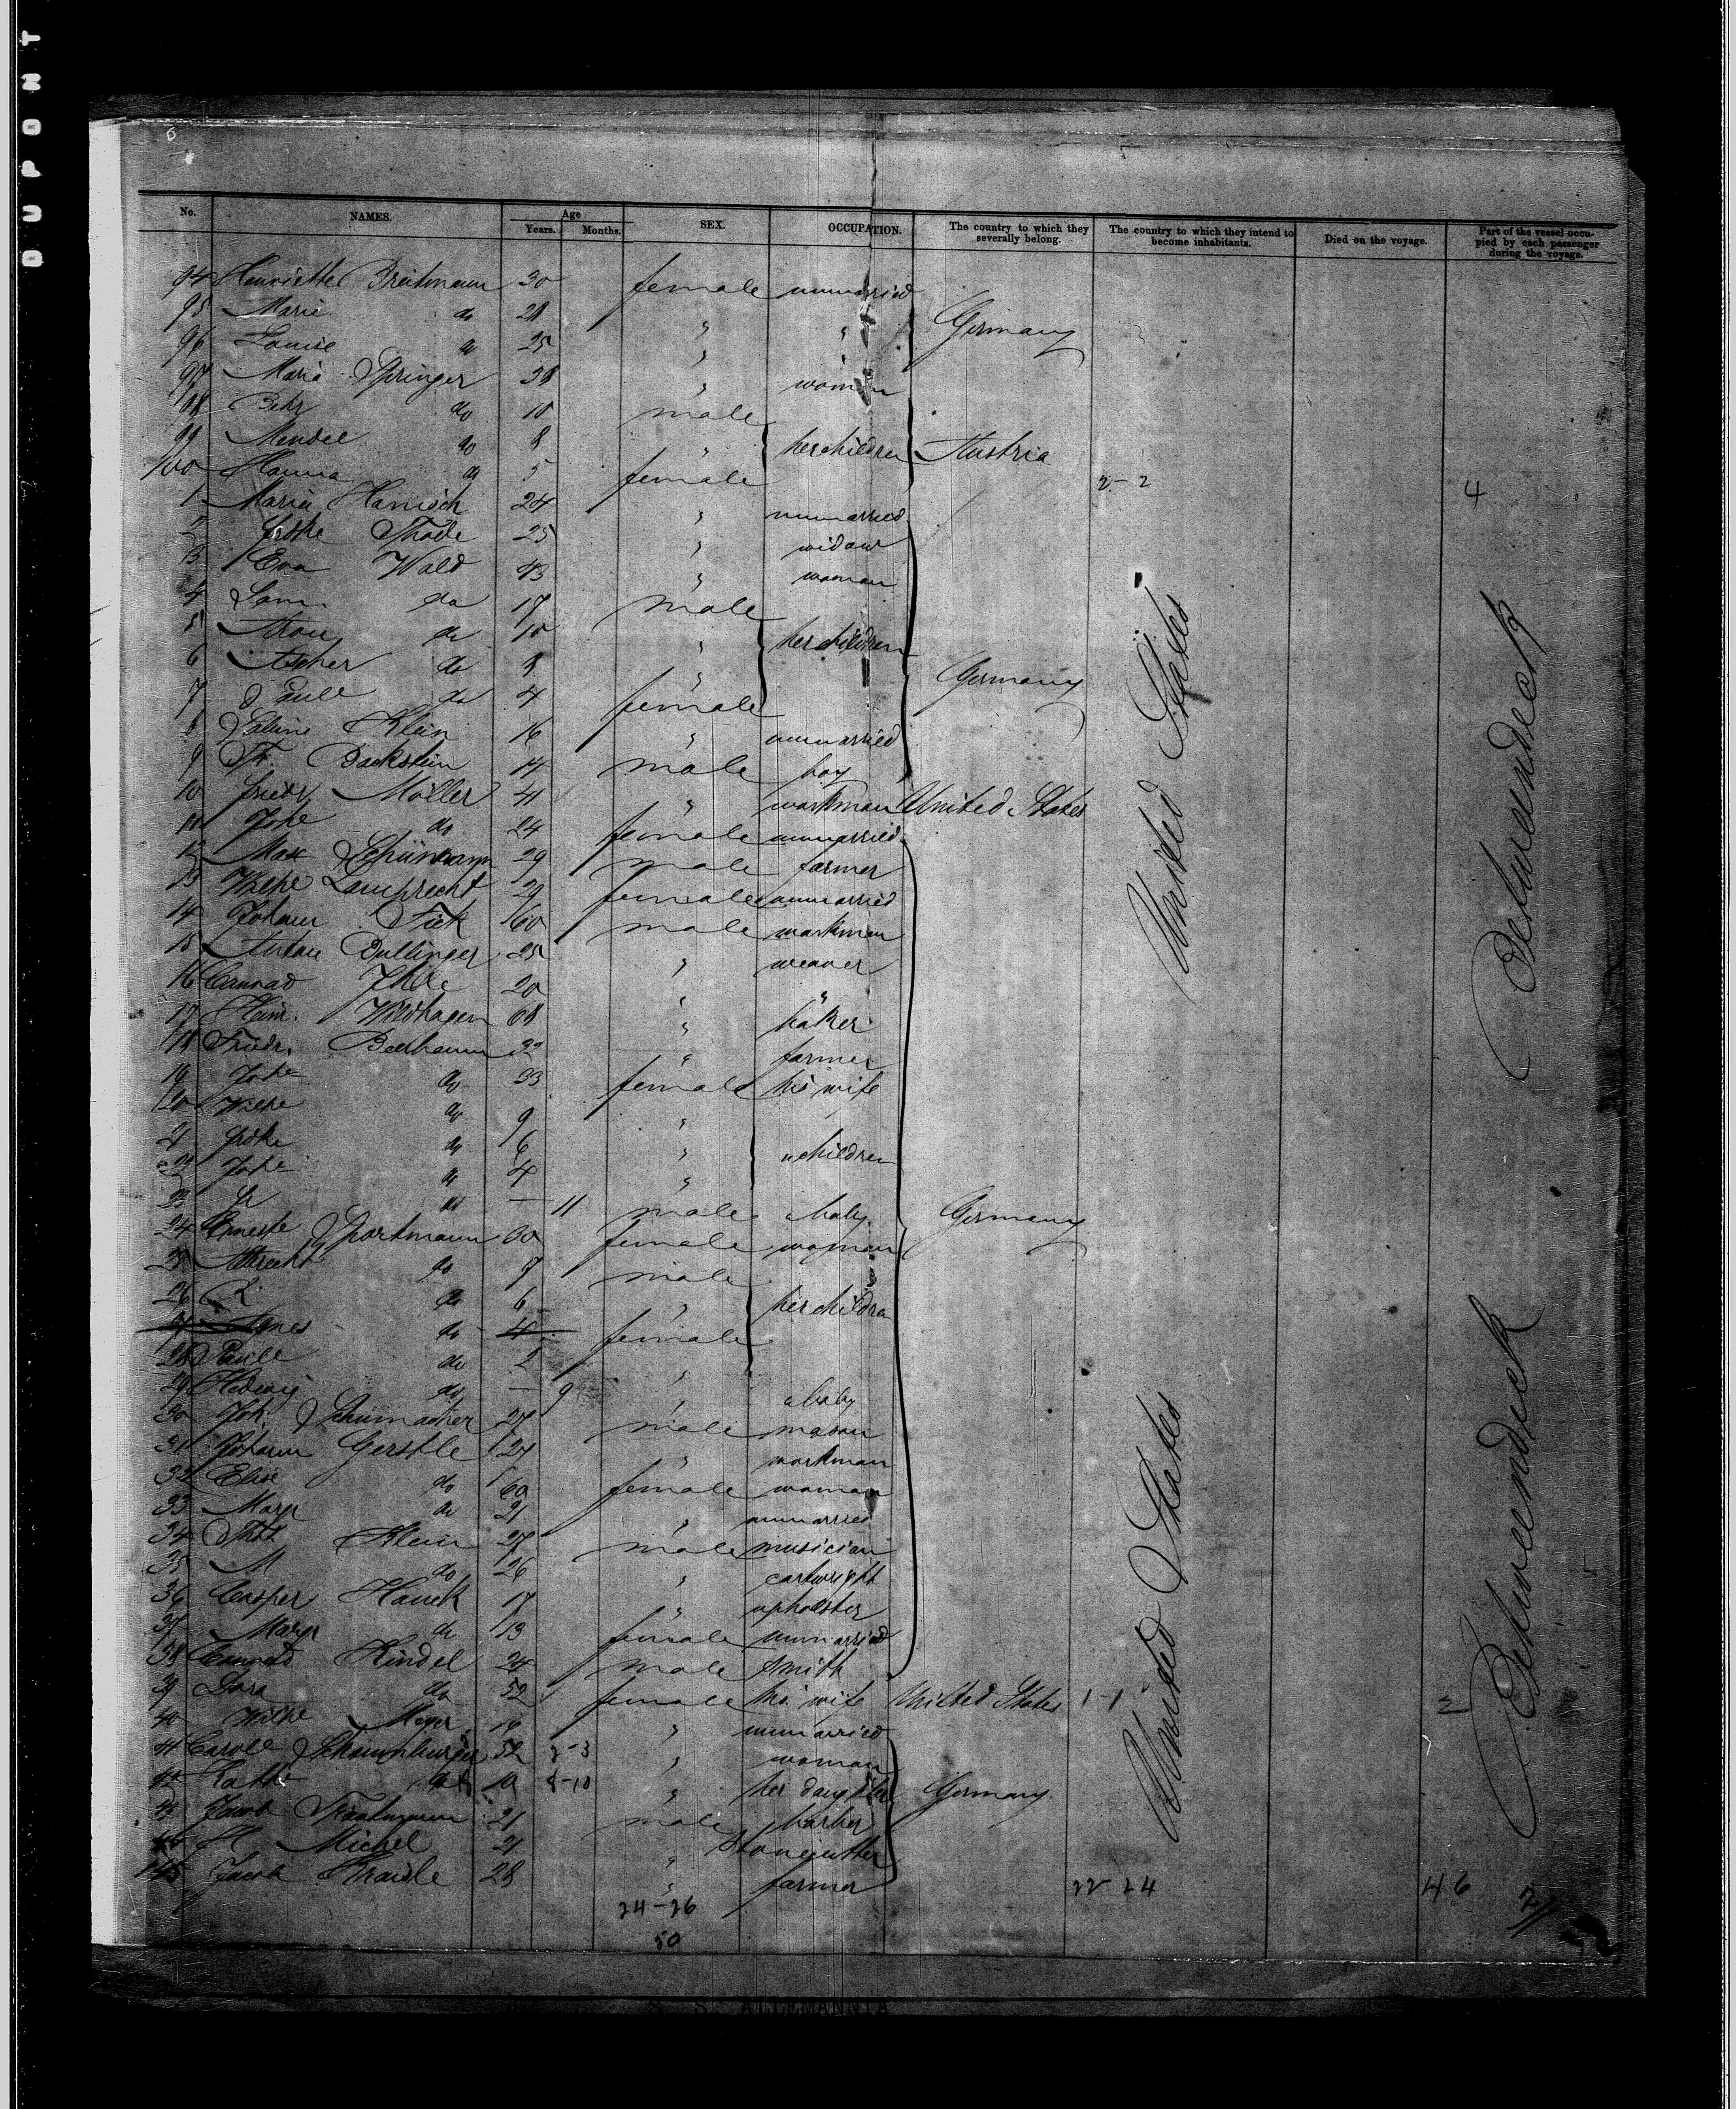 DUPONT
No. NAMES. Age Years. Months. SEX. OCCUPATION. The country to which they severally belong. The country to which they intend to become inhabitants. Died on the voyage. Part of the vessel occupied by each passenger during the voyage.
94 Henriette Breitmann 30 female unmarried
95 Marie do 28 " " Germany
96 Louise do 25 " "
97 Maria Springer 38 " woman
98 Behr do 10 male
99 Mendel do 8 " her children Austria
100 Hanna do 5 female 2-2 4
1 Maria Hanisch 24 " unmarried
2 Thode 25 " widow
3 Eva Wald 43 " woman
4 Sam. do 17 male
5 Aron do 10 " her children
6 Ascher do 8 "
7 do 4 female Germany
8 Klein 16 " unmarried
9 Backstein 14 male boy
10 Friedr Möller 41 " workman United States
11 Johe do 24 female unmarried
12 Max Schünemann 29 male farmer
13 Wilhe Lamprecht 29 female unmarried
14 Johann Fick 60 male workman
15 Anton Dullinger 25 " weaver
16 Conrad Ihde 20 " "
17 Heinr. Wildhagen 68 " baker
18 Friedr. Beerbaum 32 " farmer
19 Johe do 33 female his wife
120 Wilhe do 9 "
21 do 6 " " children
22 Johe do 4 "
23 do — 11 male baby
24 Erneste Sportmann 30 female woman Germany
25 Albrecht do 7 male
26 do 6 " her children
27 Agnes do 4 female
28 Paule do 2 "
29 Hedwig do — 9 " a baby
30 Joh. Schumacher 27 male mason
31 Johann Gerstle 24 " workman
32 Elise do 60 female woman
33 Margr do 21 " unmarried
34 Klein 28 male musician
35 M do 26 " cartwright
36 Casper Hauck 17 " upholster
37 Margr do 13 female unmarried
38 Conrad Kindel 24 male smith
39 Dora do 52 female his wife United States 1-1 2
40 Wilhe Meyer 16 " unmarried
41 Carole Schaumburger 52 2-3 " woman
42 Kathe do 10 8-10 " her daughter Germany
43 Jacob Trautmann 21 male barber
44 H Michel 21 " Stonecutter
145 Jacob 28 " farmer 22-24 46
United States
Betweendeck
United States
Betweendeck
24-26
50
S. S. ALLEMANNIA